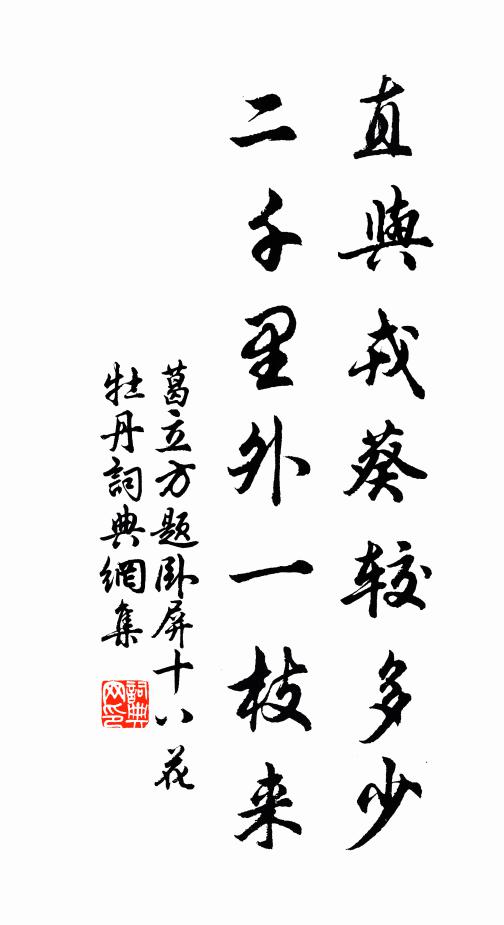 直與戎葵较多少
二千里外一枝来
葛立方题卧屏十八花
牡丹詞典網集
詞典网印